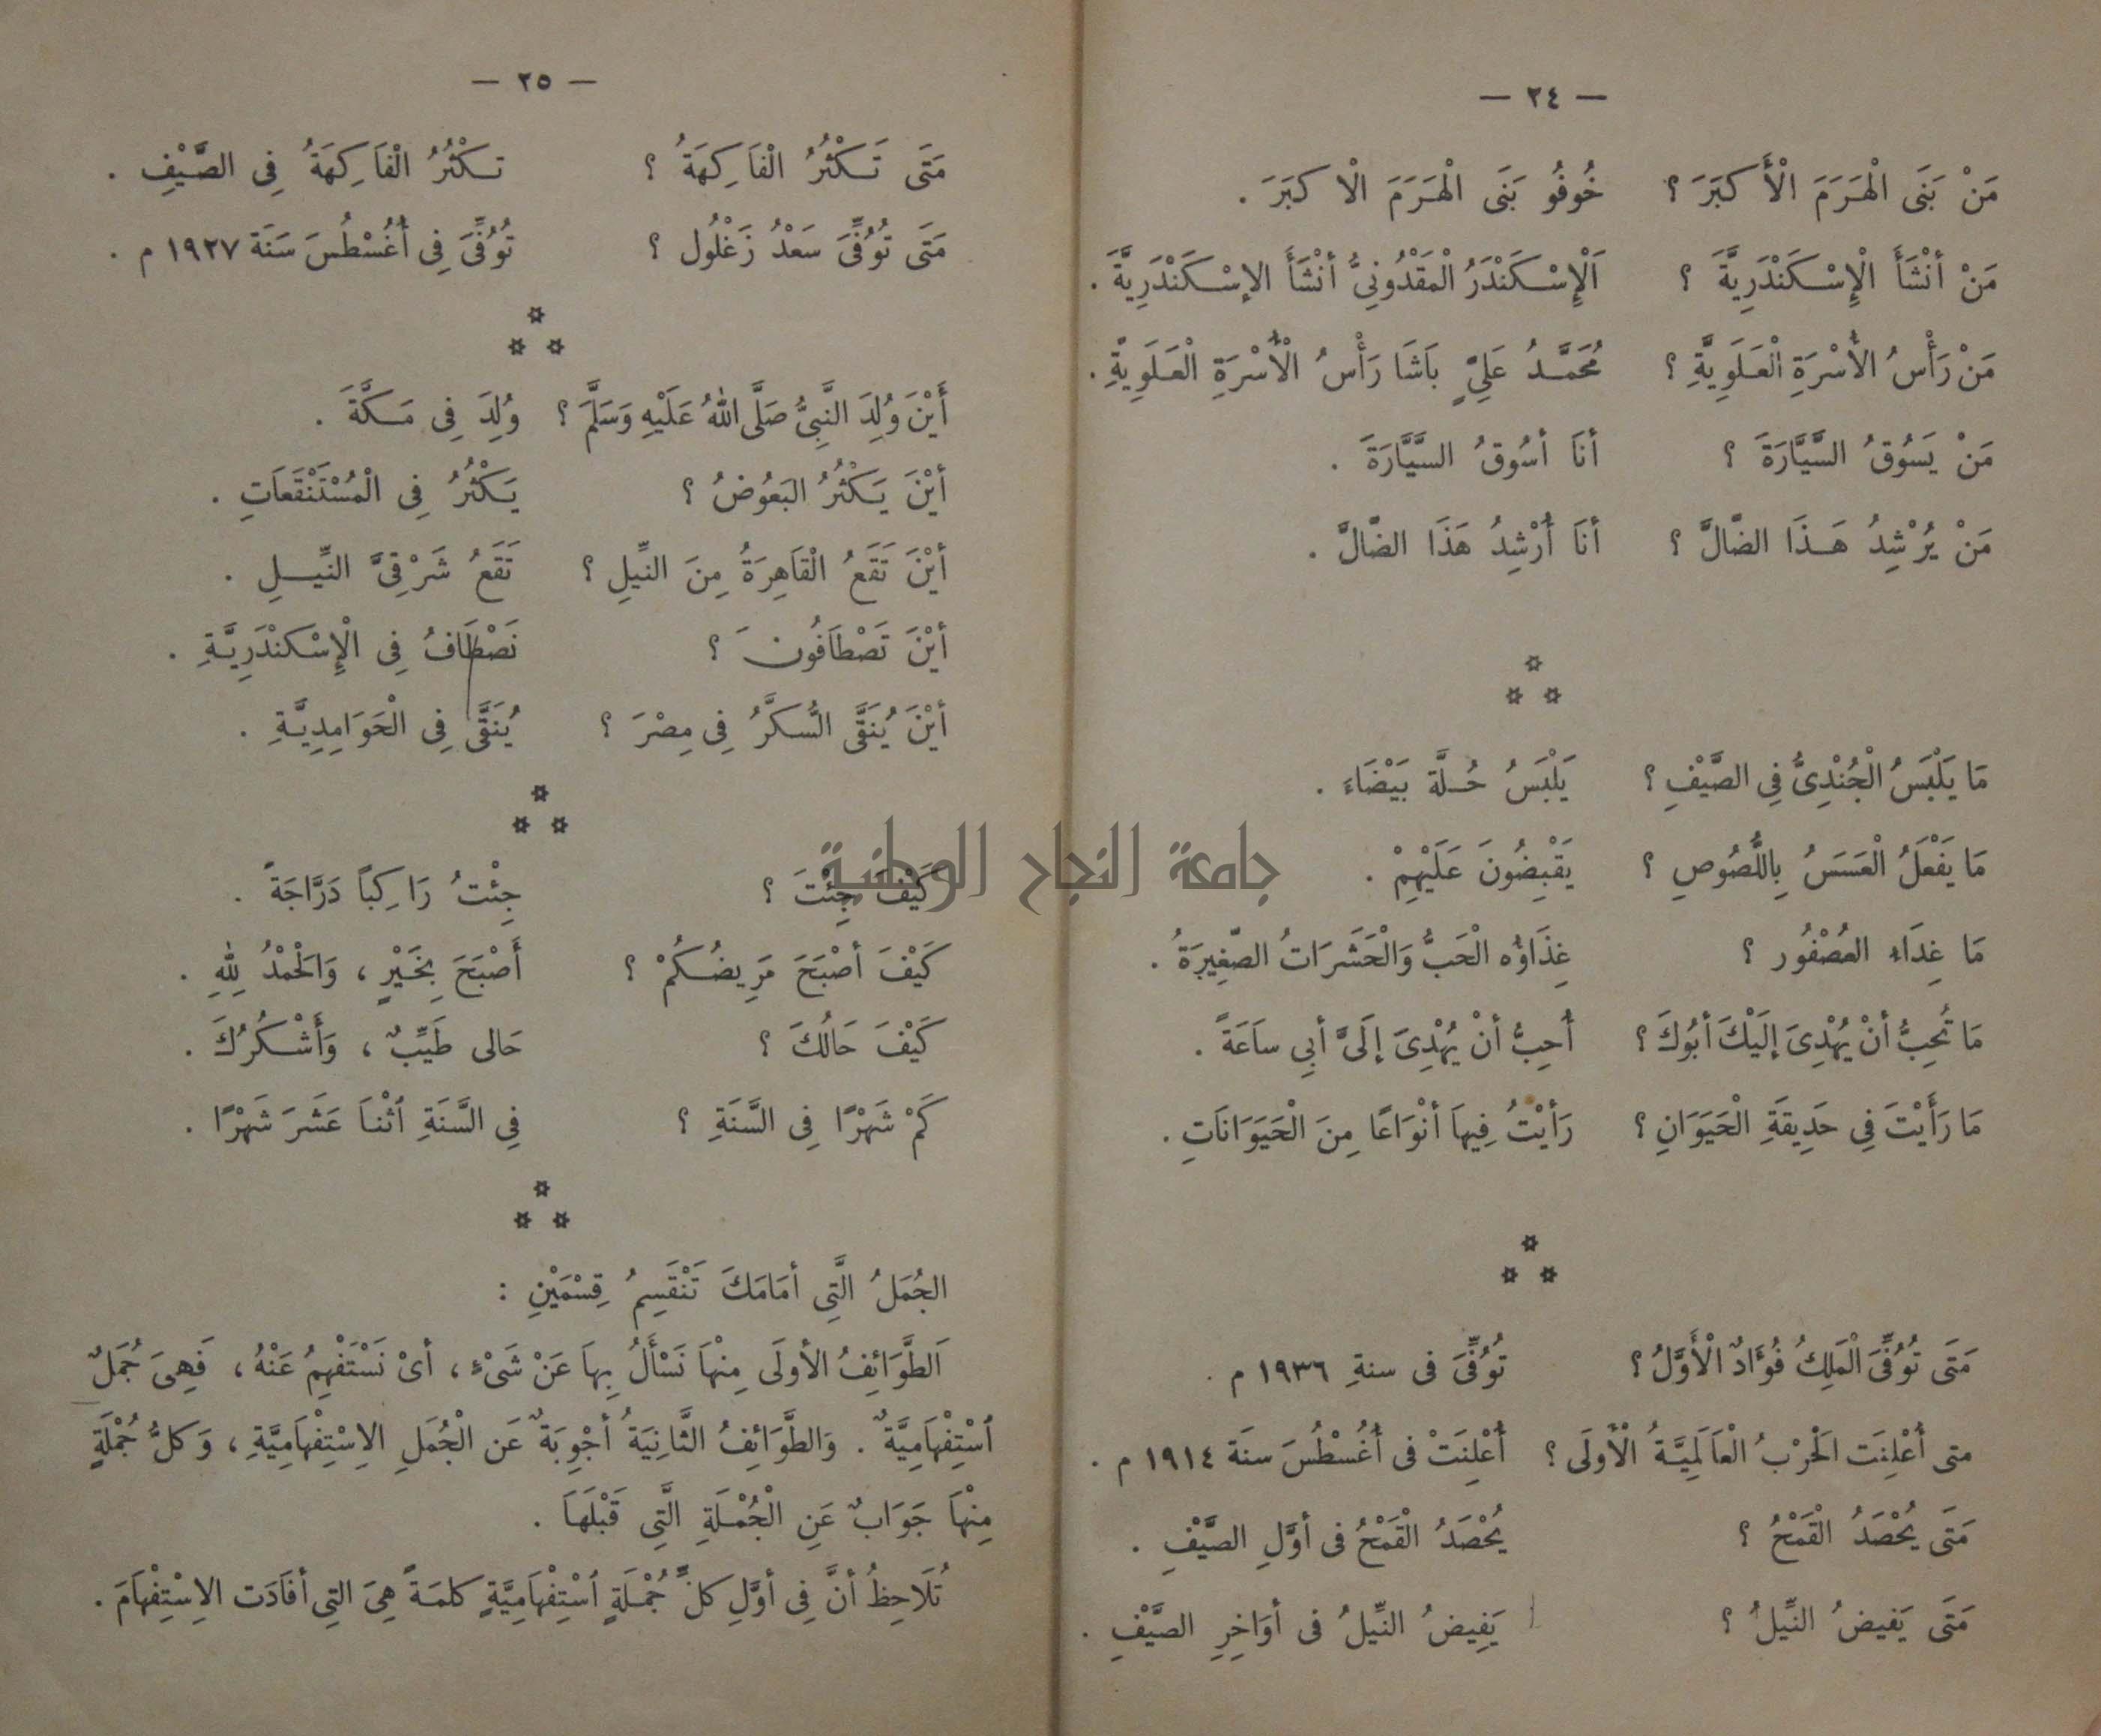 — ٢٤ —
مَنْ بَنَى الْهَرَمَ الْأَكبَرَ ؟ خُوفُو بَنَى الْهَرَمَ الْاكبَرَ .
مَنْ أنْشَأَ الْإِسْكَنْدَرِيَّةَ ؟ اَلْإِسْكَنْدَرُ الْمَقْدُونِىُّ أنْشَأَ الإسْكَنْدَرِيَّةَ .
مَنْ رَأْسُ الأُسْرَةِ الْعَلَوِيَّةِ ؟ مُحَمَّدُ عَلِيٍّ بَاشَا رَأْسُ الْأُسْرَةِ الْعَلَوِيَّةِ .
مَنْ يَسُوقُ السَّيَّارَةَ ؟ أنَا أسُوقُ السَّيَّارَةَ .
مَنْ يُرْشِدُ هَذَا الضَّالَّ ؟ أنَا أُرْشِدُ هَذَا الضَّالَّ .
مَا يَلْبَسُ الْجُنْدِىُّ فِى الصَّيْفِ ؟ يَلْبَسُ حُلَّة بَيْضَاءَ .
مَا يَفْعَلُ الْعَسَسُ بِاللُّصُوصِ ؟ يَقْبِضُونَ عَلَيْهِمْ .
مَا غِدَاءِ العُصْفُور ؟ غِذَاؤُه الْحَبُّ وَالْحَشَرَاتُ الصَّغِيرَةُ .
مَا تُحِبُّ أنْ يُهْدِىَ إلَيْكَ أبُوكَ ؟ أُحِبُّ أنْ يُهْدِىَ إلَىَّ أبِى ساَعَةً .
مَا رَأَيْتَ فِى حَدِيقَةِ الْحَيَوَانِ ؟ رَأيْتُ فِيهاَ أنْوَاعًا مِنَ الْحَيَوَانَاتِ .
مَتَى تُوُفِّىَ الْمَلِكُ فُؤَادُ الْأَوَّلُ ؟ تُوُفِّىَ فى سنةِ ١٩٣٦ م .
متى أُعْلِنَت الْحَرْبُ الْعاَلَمِيَّةُ الْأُولَى ؟ أُعْلِنَتْ فى أُغُسْطُسَ سنَة ١٩١٤ م .
مَتَى يُحْصَدُ الْقَمْحُ ؟ يُحْصَدُ الْقَمْحُ فى أوَّلِ الصَّيْفِ .
مَتَى يَفيضُ النِّيلُ ؟ يَفِيضُ النِّيلُ فى أوَاخِرِ الصَّيْفِ .
— ٢٥ —
مَتَى تَكْثُرُ الْفاَكِهَةُ ؟ تكْثُرُ الْفاَكِهَةُ فِى الصَّيْفِ .
مَتَى تُوُفِّىَ سَعْدُ زَغْلُول ؟ تُوُفِّىَ فِى أُغُسْطُسَ سَنَة ١٩٢٧ م .
أَيْنَ وُلِدَ النَّبِىُّ صَلَّى اللهُ عَلَيْهِ وَسَلَّمَ ؟ وُلِدَ فِى مَكَّةَ .
أيْنَ يَكْثُرُ البَعُوضُ ؟ يَكْثُرُ فِى الْمُسْتَنْقَعاَتِ .
أيْنَ تَقَعُ الْقاَهِرَةُ مِنَ النِّيلِ ؟ تَقَعُ شَرْقِىَّ النِّيلِ .
أيْنَ تَصْطَافُونَ ؟ نَصْطَافُ فِى الْإِسْكنْدَرِيَّةِ .
أيْنَ يُنَقَّى السُّكَّرُ فِى مِصْرَ ؟ يُنَقَّى فِى الْحَوَامِدِيَّةِ .
كَيْفَ جِئْتَ ؟ جِئْتُ رَاكِباً دَرَّاجَةً .
جامعة النجاح الوطنية
كَيْفَ أصْبَحَ مَرِيضُكُمْ ؟ أَصْبَحَ بِخَيْرٍ ، وَالْحَمْدُ لِلهِ .
كَيْفَ حَالُكَ ؟ حَالى طَيِّبٌ ، وَأَشْكُرُكَ .
كَمْ شَهْرًا فِى السَّنَةِ ؟ فِى السَّنَةِ ٱثْناَ عَشَرَ شَهْرًا .
الجُمَلُ الَّتِى أمَامَكَ تَنْقَسِمُ قِسْمَيْنِ :
اَلطَّوَائِفُ الأولَى مِنْهاَ نَسْأَلُ بِهاَ عَنْ شَىْءٍ ، أىْ نَسْتَفْهِمُ عَنْهُ ، فَهِىَ جُمَلٌ
ٱسْتِفْهاَمِيَّةٌ . وَالطَّوَائِفُ الثَّانِيَةُ أجْوِبَةٌ عَن الْجُمَلِ الِاسْتِفْهاَمِيَّةِ ، وَكلُّ جُمْلَةٍ
مِنْهاَ جَوَابٌ عَنِ الْجُمْلَةِ الَّتِى قَبْلَهاَ .
تُلَاحِظُ أنَّ فِى أوَّلِ كلِّ جُمْلَةٍ ٱسْتِفْهاَمِيَّةٍ كلمَةً هِىَ التِى أفَادَت الِاسْتِفْهاَمَ .